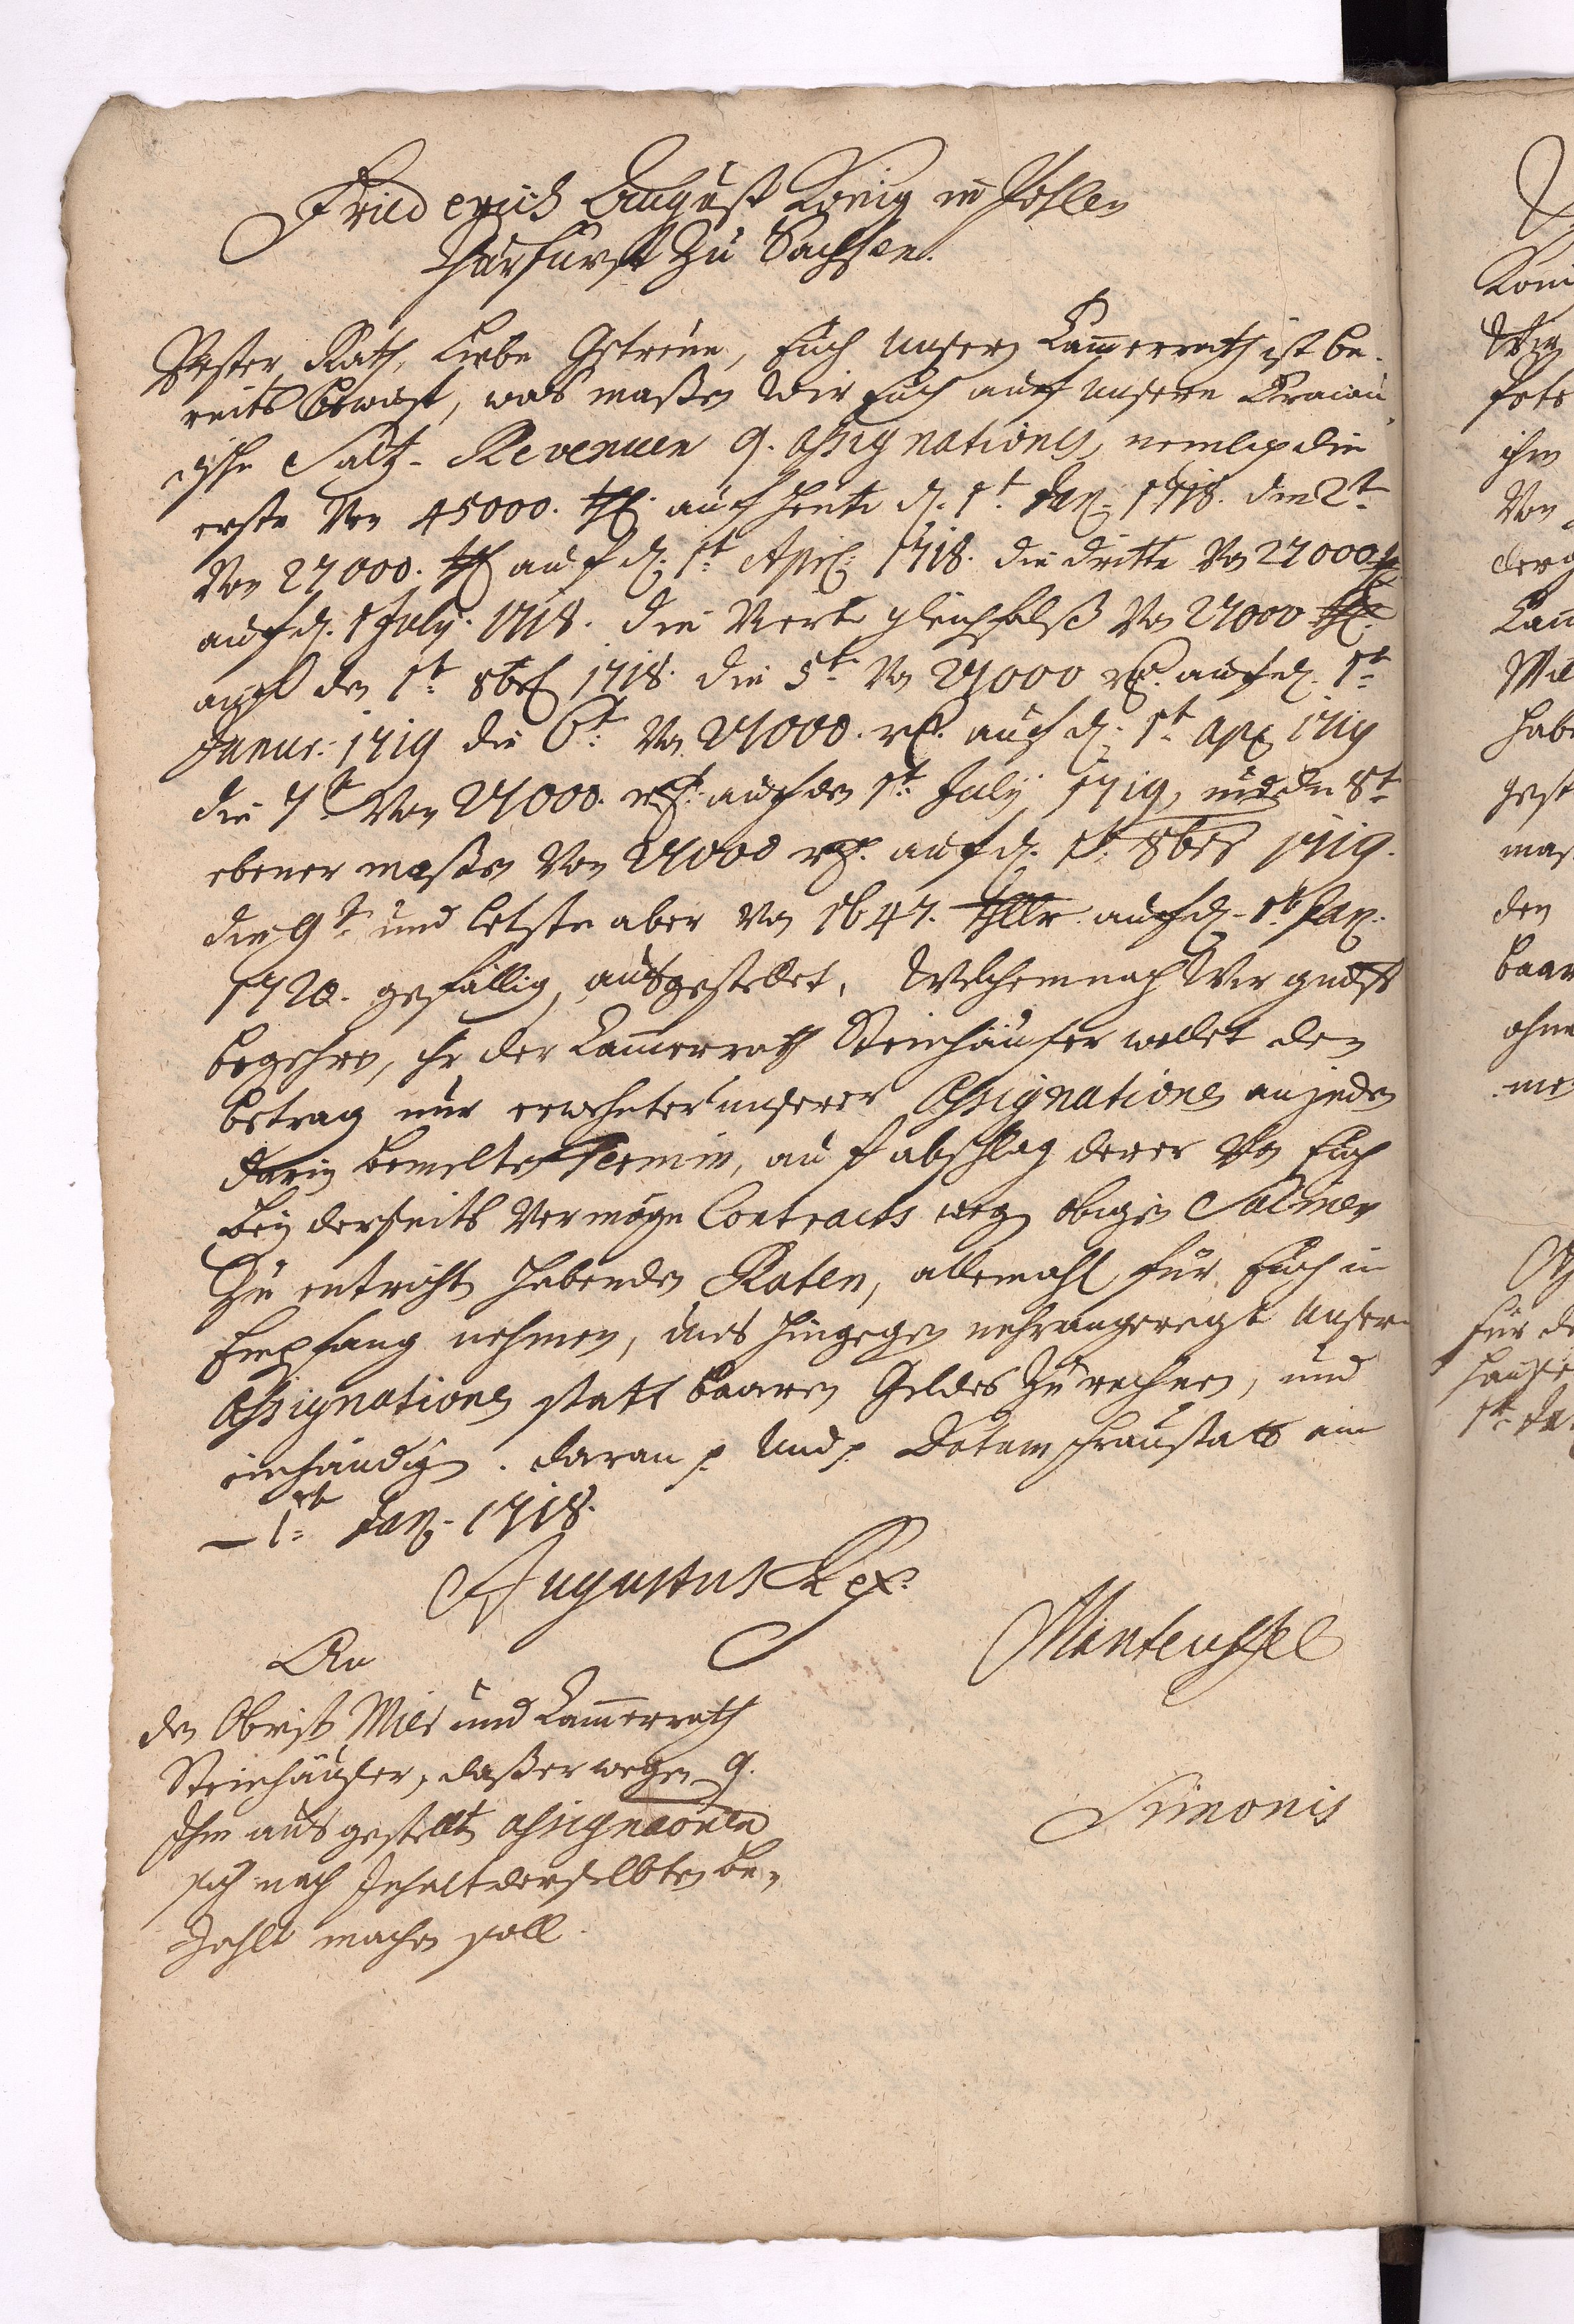 Friederich August König in Pohlen
Churfürst Zu Sachsen.
Vester Rath, Liebe Getreue, Euch Unserm Cammerrath ist be-
reits bewust, was maßen Wir Euch auf unsere Cracau-
ische Saltz-Revenuen 9. Assignationes, nemlich die
erste Von 45000. thl. auf heute d. 1t. Jan. 1718. die 2t.
Von 27000. thl auf d. 1t. April: 1718. die dritte Von 27000 thl
auf d. 1 July. 1718. die Vierte gleichfalß Von 27000 thl.
auf den 1t. 8br 1718. die 5t. Von 27000 rl. auf d. 1t.
Januar: 1719 die 6t. Von 27000. rl. auf d. 1t. Apr 1719
die 7t Von 27000. rl. auf den 1t. July 1719, und die 8t.
ebener maßen Von 27000 rl. auf d. 1t. 8br 1719.
die 9t. und letzte aber Von 1647. thllr auf d. 1t. Jan.
1720. gefällig, ausgestellet. Welchemnach Wir gndst
begehren, ihr der Cammerrath Steinhäuser wollet den
betrag nur erwehnter unserer Assignationen an jeden
darin bemelten Termin, auf abschlag derer Von Euch
beyderseits Vermöge Contracts weg. obigen Salinen
Zu entrichten habenden Raten, allemahl für Euch in
Empfang nehmen, uns hingegen mehrangeregt Unsere
Assignationen statt baaren Geldes Zurechnen, und
einhändigen. daran p. Und p. Datum Fraustatt am
1t. Jan. 1718.
Augustus Rex.
Manteuffel
An
den Obrist Mier und Cammerrath
Steinhäußer, daß er wegen 9.
Ihm ausgestellt. assignaonen
sich nach Inhalt derselbten be-
zahlt machen soll.
Simonis